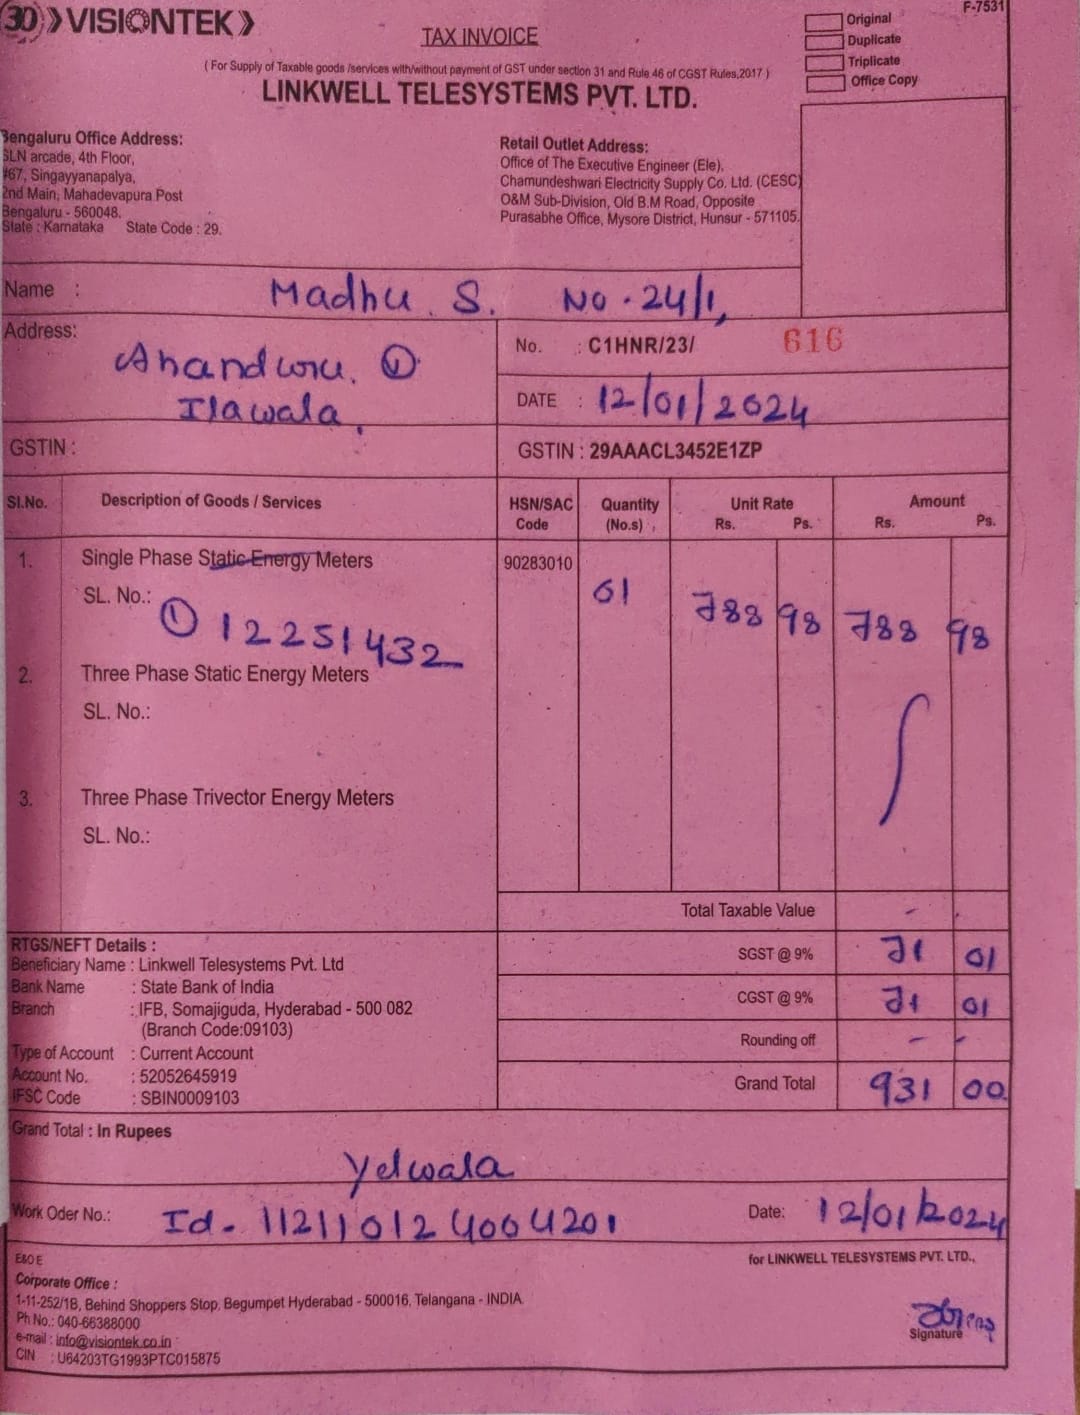 3D VISIONTEK
F-7531
TAX INVOICE
Original
Duplicate
Triplicate
Office Copy
( For Supply of Taxable goods /services with/without payment of GST under section 31 and Rule 46 of CGST Rules,2017 )
LINKWELL TELESYSTEMS PVT. LTD.
Bengaluru Office Address:
SLN arcade, 4th Floor,
#67, Singayyanapalya,
2nd Main, Mahadevapura Post
Bengaluru - 560048.
State : Karnataka State Code : 29.
Retail Outlet Address:
Office of The Executive Engineer (Ele),
Chamundeshwari Electricity Supply Co. Ltd. (CESC)
O&M Sub-Division, Old B.M Road, Opposite
Purasabhe Office, Mysore District, Hunsur - 571105.
Name : Madhu. S. No. 24/1,
Address:
Ilawala,
No. : C1HNR/23/ 616
DATE : 12/01/2024
GSTIN :
GSTIN : 29AAACL3452E1ZP
Sl.No. Description of Goods / Services HSN/SAC Code Quantity (No.s) Unit Rate Rs. Ps. Amount Rs. Ps.
1. Single Phase Static Energy Meters 90283010 01 788 98 788 98
SL. No.: ① 12251432
2. Three Phase Static Energy Meters
SL. No.:
3. Three Phase Trivector Energy Meters
SL. No.:
Total Taxable Value -
SGST @ 9% 71 01
CGST @ 9% 71 01
Rounding off - -
Grand Total 931 00
RTGS/NEFT Details :
Beneficiary Name : Linkwell Telesystems Pvt. Ltd
Bank Name : State Bank of India
Branch : IFB, Somajiguda, Hyderabad - 500 082
(Branch Code:09103)
Type of Account : Current Account
Account No. : 52052645919
IFSC Code : SBIN0009103
Grand Total : In Rupees
Yelwala
Work Oder No.: Id - 112110124004201 Date: 12/01/2024
E&O E
for LINKWELL TELESYSTEMS PVT. LTD.,
Corporate Office :
1-11-252/1B, Behind Shoppers Stop, Begumpet Hyderabad - 500016, Telangana - INDIA.
Ph No.: 040-66388000
e-mail : info@visiontek.co.in
CIN : U64203TG1993PTC015875
Signature